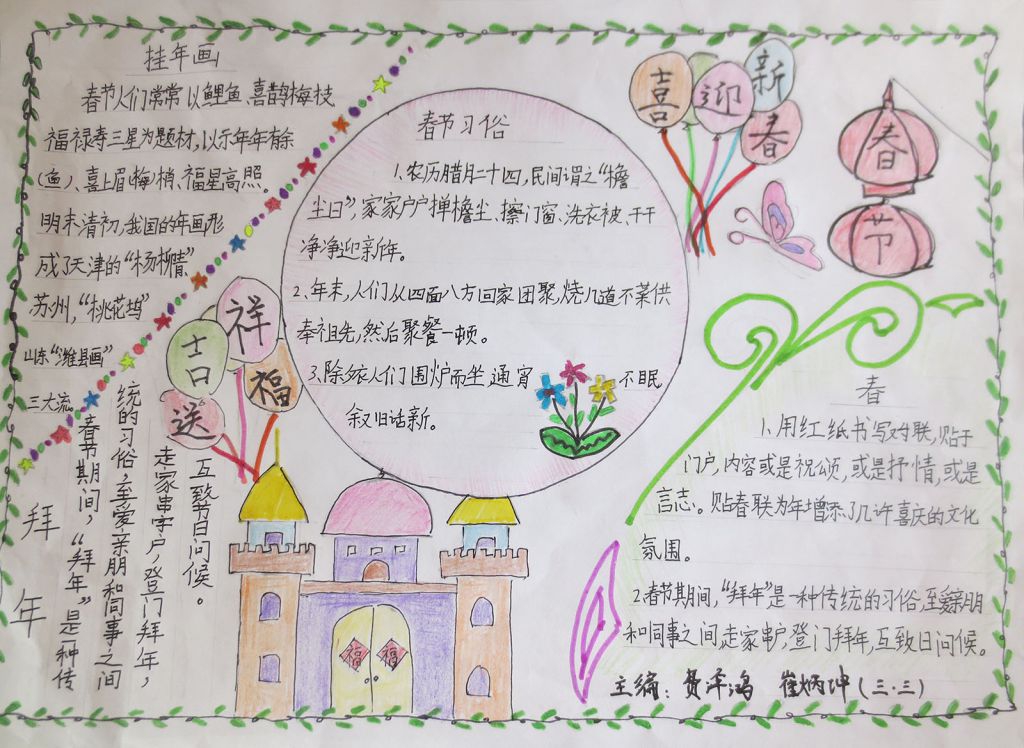 挂年画
春节人们常常以鲤鱼、喜鹊梅枝、
福禄寿三星为题材,以示年年有余
(鱼)、喜上眉(梅)梢、福星高照。
明末清初,我国的年画形
成了天津的“杨柳青”
苏州,“桃花坞”
山东“潍县画”
三大流
拜年
春节期间,“拜年”是一种传
统的习俗,至爱亲朋和同事之间
走家串户,登门拜年,
互致节日问候。
吉祥
送福
春节习俗
1、农历腊月二十四,民间谓之“檐
尘日”,家家户户掸檐尘、擦门窗、洗衣被、干干
净净迎新年。
2、年末,人们从四面八方回家团聚,烧几道不荤供
奉祖先,然后聚餐一顿。
3、除夕夜人们围炉而坐,通宵不眠
叙旧话新。
福 福
喜迎新春
春节
春
1、用红纸书写对联,贴于
门户,内容或是祝颂,或是抒情,或是
言志。贴春联为年增添了几许喜庆的文化
氛围。
2、春节期间,“拜年”是一种传统的习俗,至爱亲朋
和同事之间,走家串户,登门拜年,互致日问候。
主编:费泽鸿 崔炳坤(三.三)